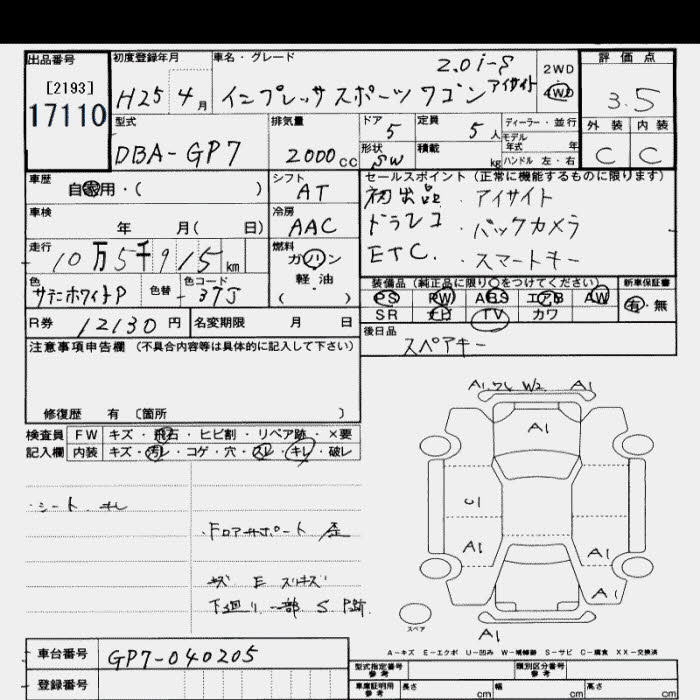 出品番号
[2193]
17110
初度登録年月
H25 4月
車名・グレード
2.0i-S
インプレッサスポーツワゴン アイサイト
2WD
4WD
評価点
3.5
外装 内装
C C
型式
DBA-GP7
排気量
2000cc
ドア 5
定員 5人
形状 SW
積載 kg
ディーラー・並行
モデル年式 年
ハンドル 左・右
車歴
自家用・( )
シフト
AT
セールスポイント (正常に機能するものに限ります)
初出品・アイサイト
ドラレコ・バックカメラ
ETC.・スマートキー
車検
年 月( 日)
冷房
AAC
走行
10万5千915km
燃料
ガソリン
軽油
( )
色
サテンホワイトP
色替
色コード
-37J
装備品 (純正品に限り○をつけてください)
PS PW ABS エアB AW
SR ナビ TV カワ
新車保証書
有・無
R券 12130円
名変期限 月 日
後日品
スペアキー
注意事項申告欄 (不具合内容等は具体的に記入して下さい)
修復歴 有 〔箇所 〕
検査員記入欄
FW キズ・飛石・ヒビ割・リペア跡・×要
内装 キズ・汚レ・コゲ・穴・スレ・キレ・破レ
・シート・キレ
・Fロアサポート 歪
キズ E スリキズ
下廻り一部 S P跡
A1 ワレ W2 A1
A1
U1
A1
A1
A1
A1
スペア
A-キズ E-エクボ U-凹み W-補修跡 S-サビ C-腐食 XX-交換済
車台番号
GP7-040205
登録番号
型式指定番号 参考
類別区分番号 参考
車庫証明用 参考
長さ cm
幅 cm
高さ cm